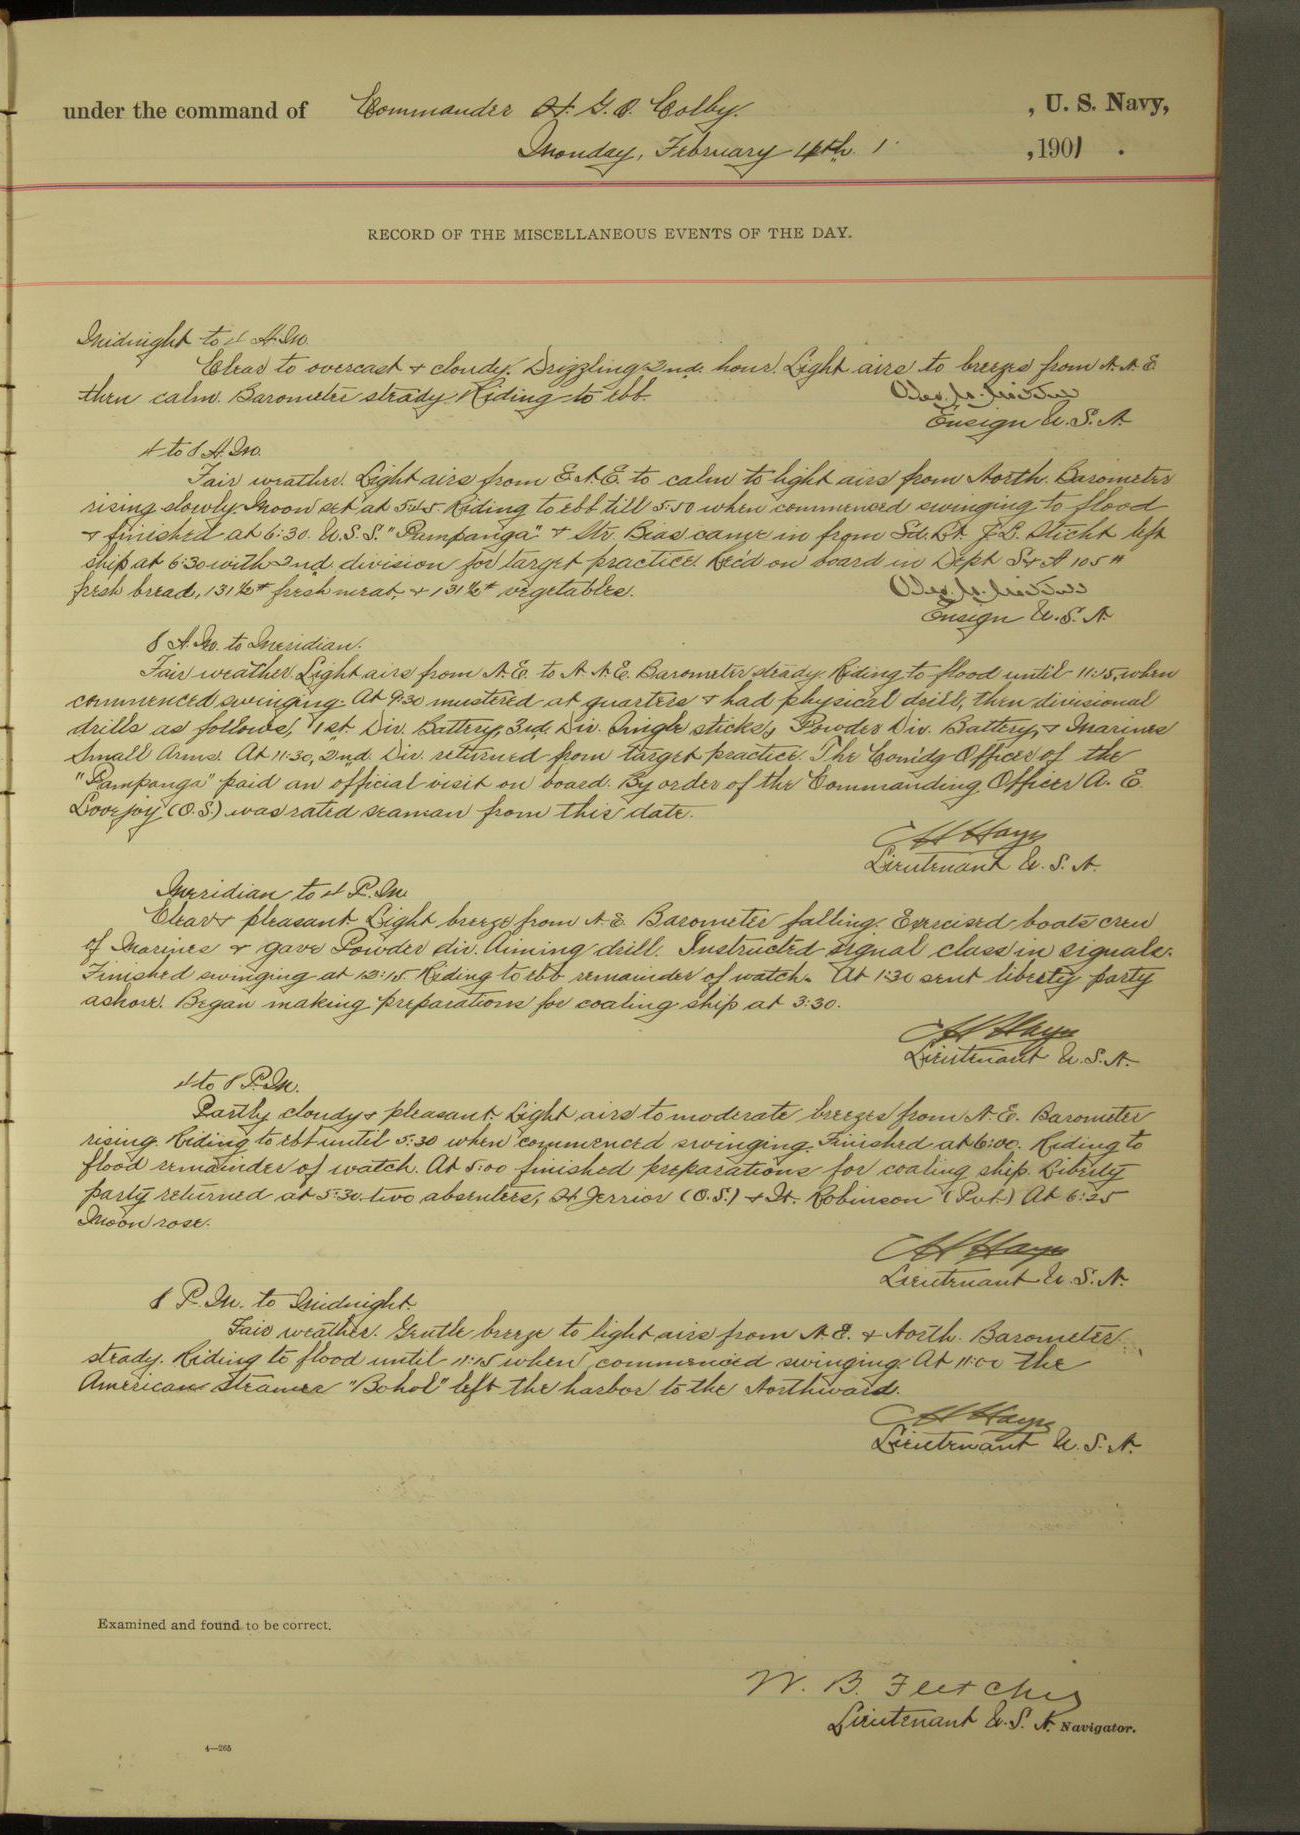 under the command of Commander H. G. O. Colby. , U. S. Navy,
Monday, February 4th. 1 , 1901 .
RECORD OF THE MISCELLANEOUS EVENTS OF THE DAY.
Midnight to 4 A.M.
Clear to overcast & cloudy. Drizzling 2nd. hour. Light airs to breezes from N.N.E.
then calm. Barometer steady. Riding to ebb.
Ensign U.S.N.
4 to 8 A.M.
Fair weather. Light airs from E.N.E. to calm to light airs from North. Barometer
rising slowly. Moon set at 5:45. Riding to ebb till 5:50 when commenced swinging to flood
& finished at 6:30. U.S.S. "Pampanga" & Str. Bias came in from Sd. Lt. J.L. Sticht left
ship at 6:30 with 2nd. division for target practice. Rec'd on board in Dept S & A 105 #
fresh bread, 131½# fresh meat, & 131½# vegetables.
Ensign U.S.N.
8 A.M. to Meridian.
Fair weather. Light airs from N.E. to N.N.E. Barometer steady. Riding to flood until 11:15, when
commenced swinging. At 9:30 mustered at quarters & had physical drill, then divisional
drills as follows, 1st. Div. Battery, 3rd. Div. Single sticks, Powder Div. Battery, & Marines
Small Arms. At 11:30, 2nd. Div. returned from target practice. The Com'dg Officer of the
"Pampanga" paid an official visit on board. By order of the Commanding Officer A. E.
Lovejoy (O.S.) was rated seaman from this date.
Lieutenant U.S.N.
Meridian to 4 P.M.
Clear & pleasant. Light breeze from N.E. Barometer falling. Exercised boats crew
of Marines & gave Powder div. Aiming drill. Instructed signal class in signals.
Finished swinging at 12:15. Riding to ebb remainder of watch. At 1:30 sent liberty party
ashore. Began making preparations for coaling ship at 3:30.
Lieutenant U.S.N.
4 to 8 P.M.
Partly cloudy & pleasant. Light airs to moderate breezes from N.E. Barometer
rising. Riding to ebb until 5:30 when commenced swinging. Finished at 6:00. Riding to
flood remainder of watch. At 5:00 finished preparations for coaling ship. Liberty
party returned at 5:30. two absentees, H. Jerrior (O.S.) & H. Robinson (Pvt.) At 6:25
Moon rose.
Lieutenant U.S.N.
8 P.M. to Midnight.
Fair weather. Gentle breeze to light airs from N.E. & North. Barometer
steady. Riding to flood until 11:15 when commenced swinging. At 11:00 the
American steamer "Bohol" left the harbor to the Northward.
Lieutenant U.S.N.
Examined and found to be correct.
W. B. Fletcher
Lieutenant U.S.N. Navigator.
4—265